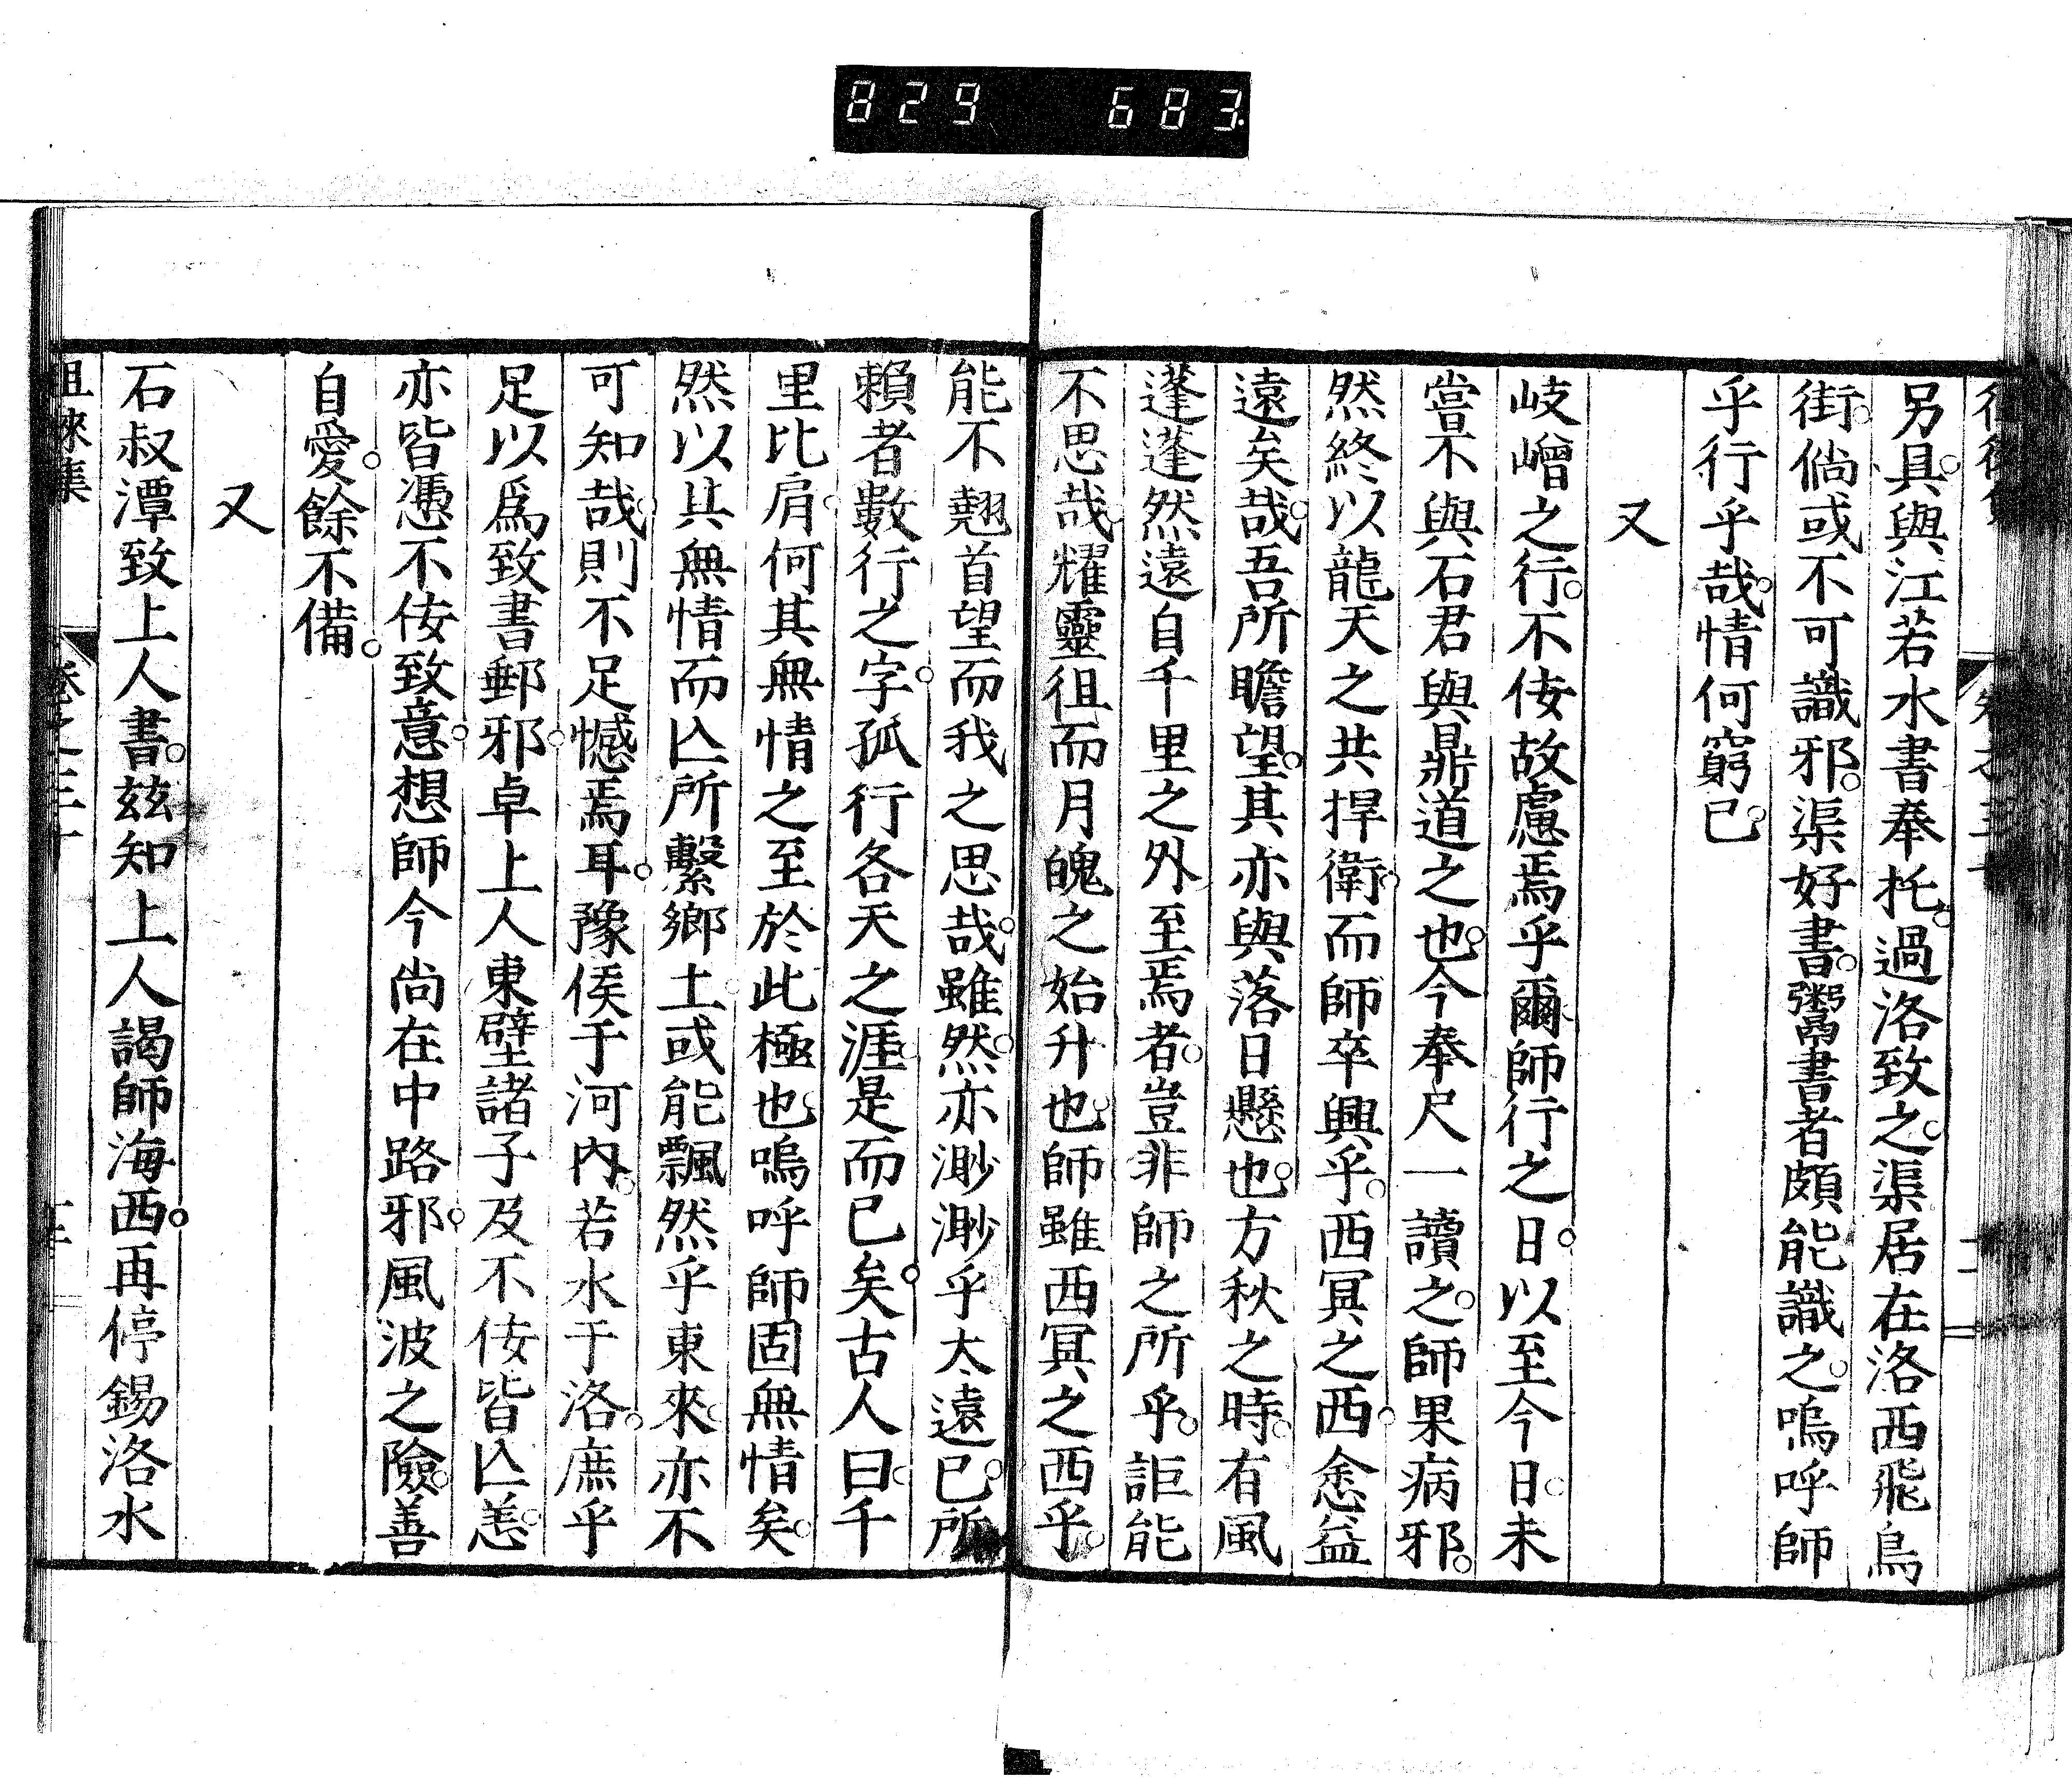 829 683
另具與江若水書奉托過洛致之渠居在洛西飛鳥
街倘或不可識邪渠好書鬻書者頗能識之嗚呼師
乎行乎哉情何窮已
又
岐嶒之行不佞故慮焉乎爾師行之日以至今日未
嘗不與石君與鼎道之也今奉尺一讀之師果病邪
然終以龍天之共捍衛而師卒興乎西冥之西悆益
遠矣哉吾所瞻望其亦與落日懸也方秋之時有風
蓬蓬然遠自千里之外至焉者豈非師之所乎詎能
不思哉耀靈徂而月魄之始升也師雖西冥之西乎
能不翹首望而我之思哉雖然亦渺渺乎太遠已所
賴者數行之字孤行各天之涯是而已矣古人曰千
里比肩何其無情之至於此極也嗚呼師固無情矣
然以其無情而亾所繫鄉土或能飄然乎東來亦不
可知哉則不足憾焉耳豫侯于河內若水于洛庶乎
足以爲致書郵邪卓上人東壁諸子及不佞皆亾恙
亦皆憑不佞致意想師今尚在中路邪風波之險善
自愛餘不備
又
石叔潭致上人書玆知上人謁師海西再停錫洛水
徂徠集 卷之三十